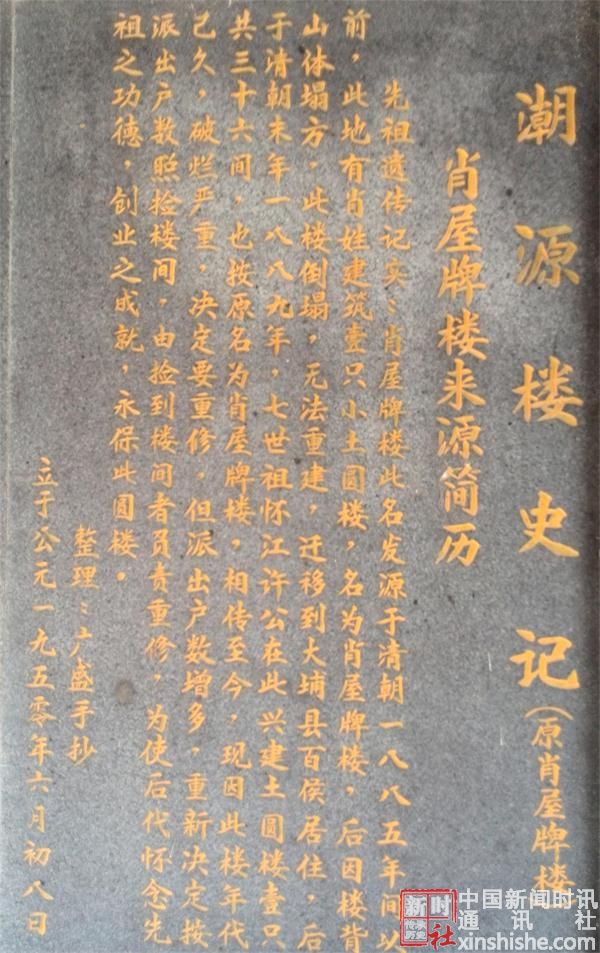 潮源楼史记(原肖屋牌楼
肖屋牌楼来源简历
先祖遗传记实:肖屋牌楼此名发源于清朝一八八五年间以
前,此地有肖姓建筑壹只小土圆楼,名为肖屋牌楼,后因楼背
山体塌方,此楼倒塌,无法重建,迁移到大埔县百侯居住.后
于清朝末年一八八九年,七世祖怀江许公在此兴建土圆楼壹只
共三十六间,也按原名为肖屋牌楼,相传至今,现因此楼年代
已久,破烂严重,决定要重修,但派出户数增多,重新决定按
派出户数照捡楼间,由捡到楼间者员责重修,为使后代怀念先
祖之功德,创业之成就,永保此圆楼。
整理:广盛手抄
立于公元一九五零年六月初八日
新时
传承历史
社
中国新闻时讯
通讯社
xinshishe.com